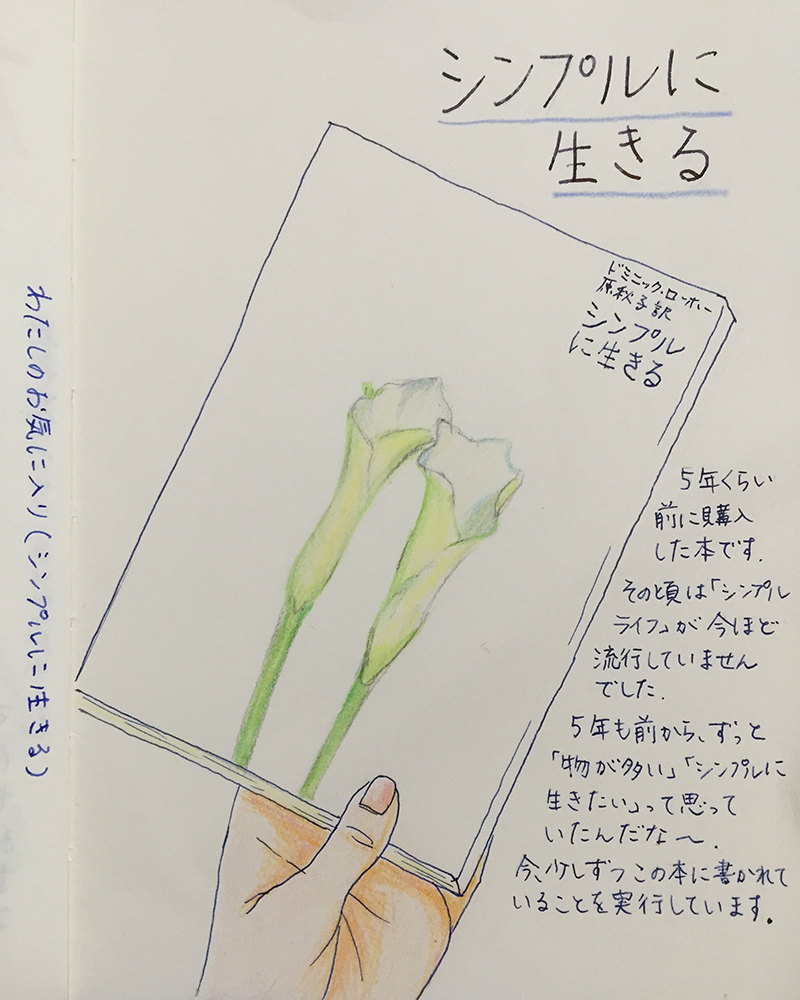 シンプルに
生きる
ドミニック・ローホー
原秋子訳
シンプル
に生きる
5年くらい
前に購入
した本です.
その頃は「シンプル
ライフ」が今ほど
流行していません
でした.
5年も前から、ずっと
「物が多い」「シンプルに
生きたい」って思って
いたんだな〜.
今、少しずつこの本に書かれて
いることを実行しています。
わたしのお気に入り(シンプルに生きる)